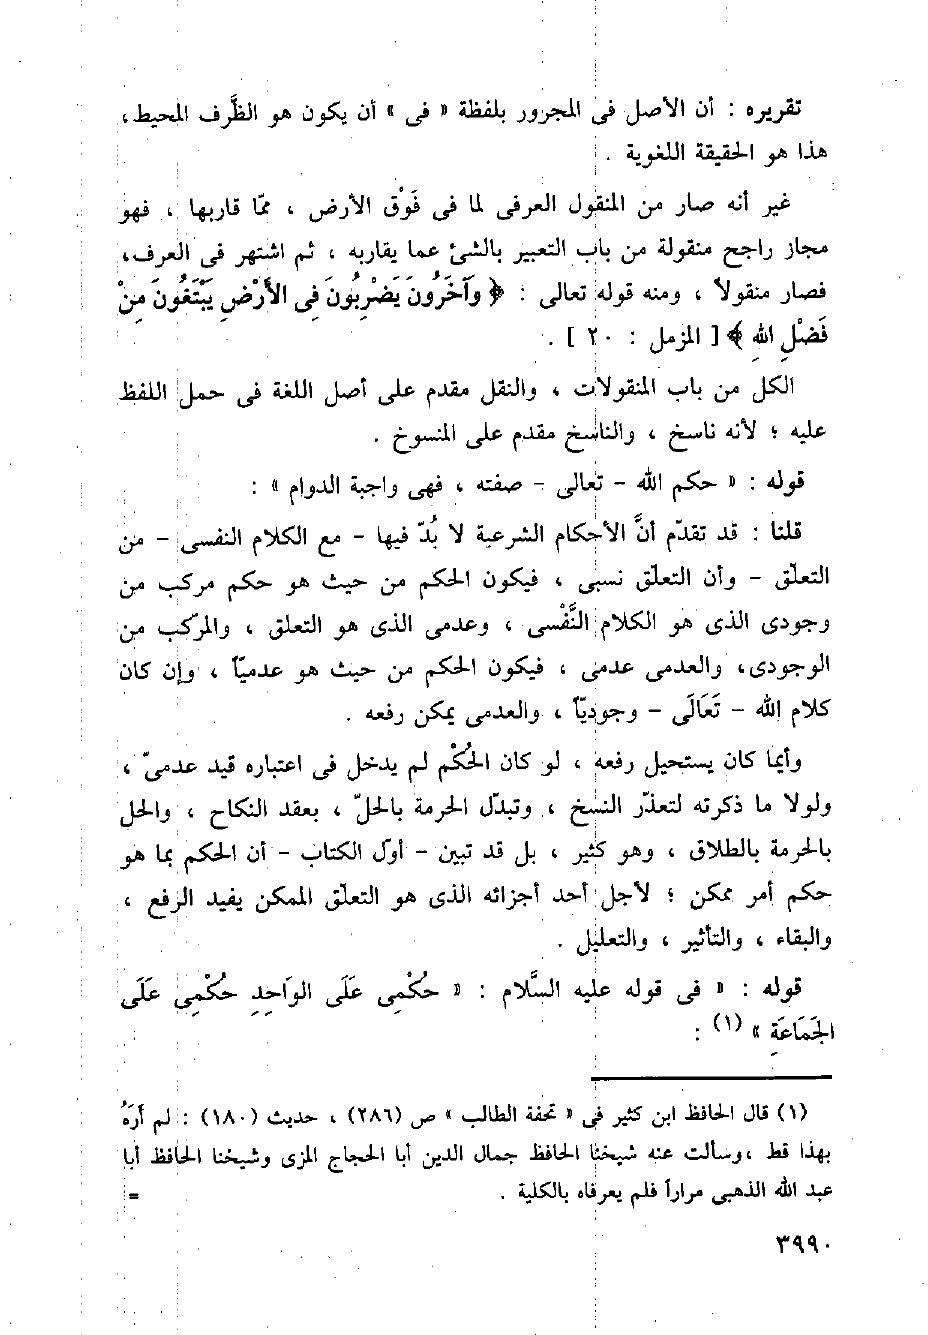 تقريره : أن الأصل فى المجرور بلفظة « فى » أن يكون هو الظَّرف المحيط،
هذا هو الحقيقة اللغوية .
غير أنه صار من المنقول العرفى لما فى فَوْق الأرض ، ممّا قاربها ، فهو
مجاز راجح منقولة من باب التعبير بالشئ عما يقاربه ، ثم اشتهر فى العرف،
فصار منقولاً ، ومنه قوله تعالى : ﴿ وَآخَرُونَ يَضْرِبُونَ فِى الأَرْضِ يَبْتَغُونَ مِنْ
فَضْلِ اللهِ ﴾ [ المزمل : ٢٠ ] .
الكل من باب المنقولات ، والنقل مقدم على أصل اللغة فى حمل اللفظ
عليه ؛ لأنه ناسخ ، والناسخ مقدم على المنسوخ .
قوله : « حكم الله - تعالى - صفته ، فهى واجبة الدوام » :
قلنا : قد تقدّم أنَّ الأحكام الشرعية لا بُدّ فيها - مع الكلام النفسى - من
التعلّق - وأن التعلّق نسبى ، فيكون الحكم من حيث هو حكم مركب من
وجودى الذى هو الكلام النَّفْسى ، وعدمى الذى هو التعلق ، والمركّب من
الوجودى، والعدمى عدمى ، فيكون الحكم من حيث هو عدميّاً ، وإن كان
كلام الله - تَعَالَى - وجوديّاً ، والعدمى يمكن رفعه .
وأيما كان يستحيل رفعه ، لو كان الحُكْم لم يدخل فى اعتباره قيد عدمىّ ،
ولولا ما ذكرته لتعذّر النسخ ، وتبدّل الحرمة بالحلّ ، بعقد النكاح ، والحل
بالحرمة بالطلاق ، وهو كثير ، بل قد تبين - أول الكتاب - أن الحكم بما هو
حكم أمر ممكن ؛ لأجل أحد أجزائه الذى هو التعلّق الممكن يفيد الرفع ،
والبقاء ، والتأثير ، والتعليل .
قوله : « فى قوله عليه السَّلام : « حُكْمِى عَلَى الوَاحِدِ حُكْمِى عَلَى
الجَمَاعَةِ » (١) :
(١) قال الحافظ ابن كثير فى « تحفة الطالب » ص (٢٨٦) ، حديث (١٨٠) : لم أرَهُ
بهذا قط ،وسألت عنه شيخنا الحافظ جمال الدين أبا الحجاج المزى وشيخنا الحافظ أبا
عبد الله الذهبى مراراً فلم يعرفاه بالكلية . =
٣٩٩٠